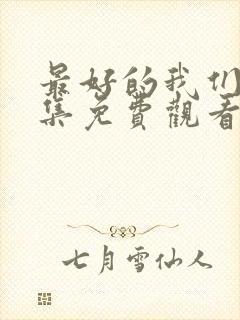 最好的我们
集免費觀看
七月雪仙人